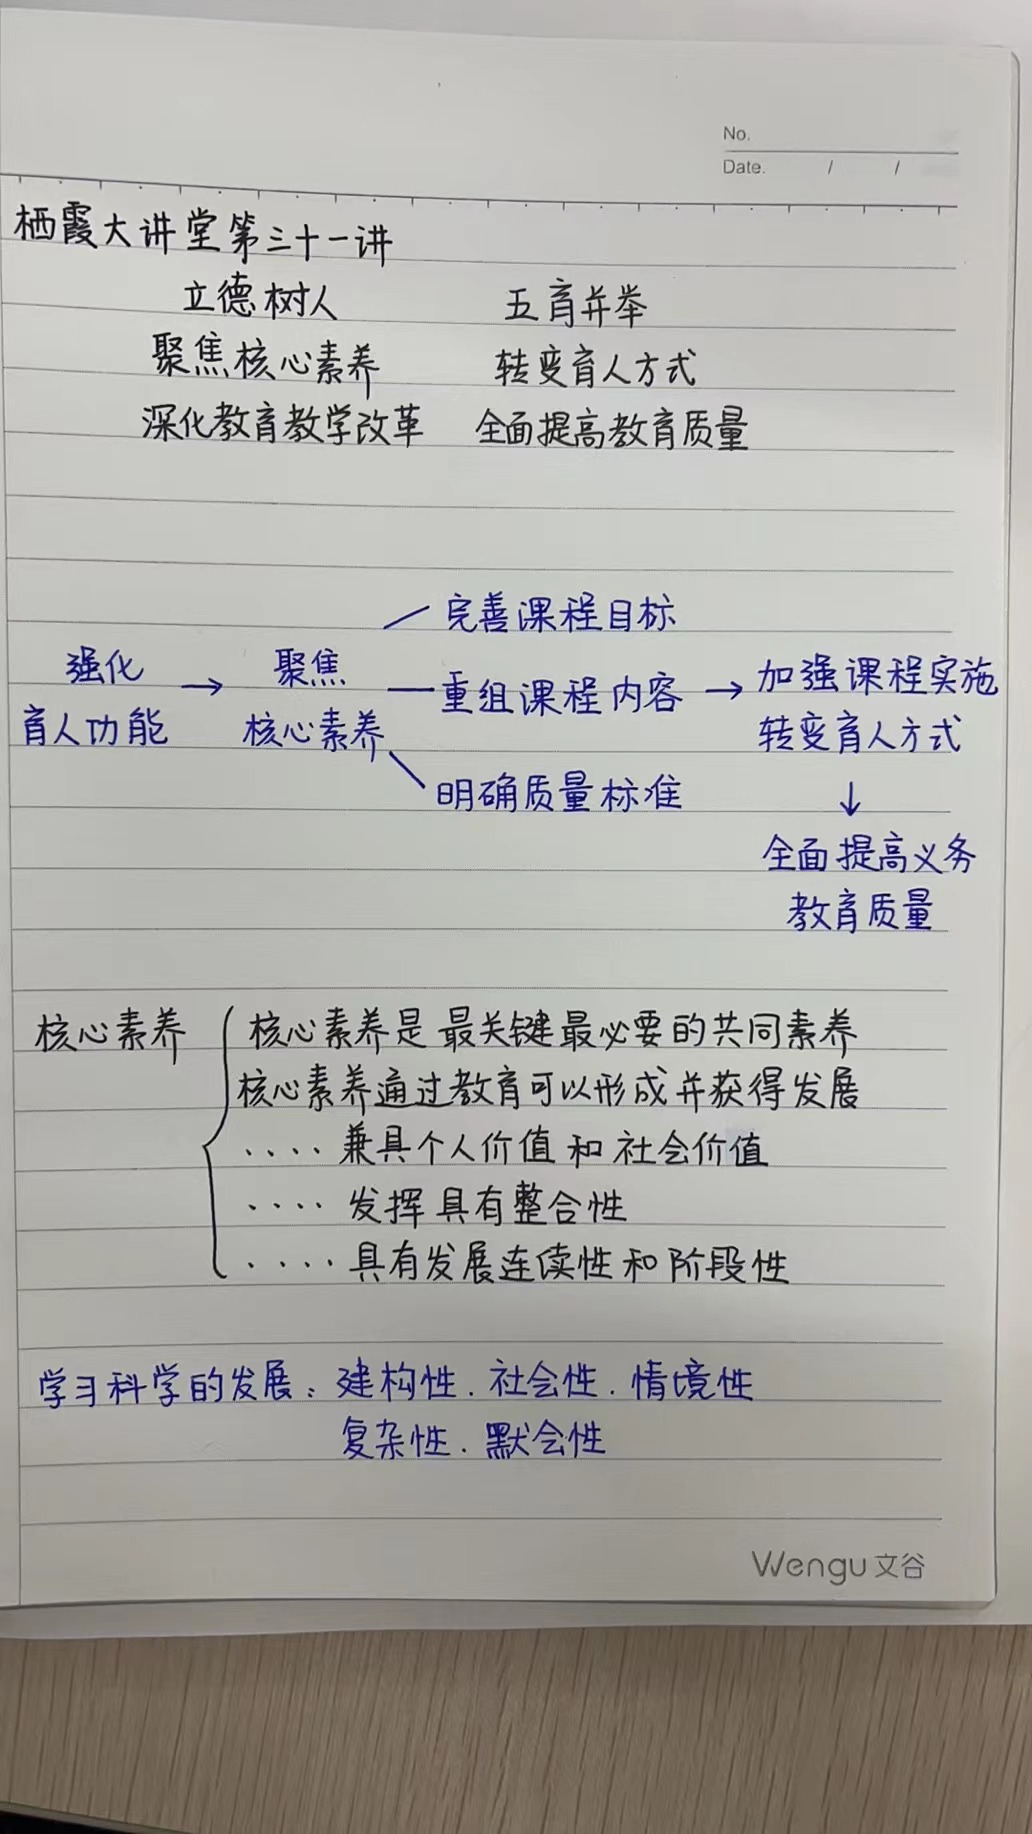 No.
Date. / /
栖霞大讲堂第三十一讲
立德树人 五育并举
聚焦核心素养 转变育人方式
深化教育教学改革 全面提高教育质量
强化
育人功能
→
聚焦
核心素养
完善课程目标
重组课程内容
明确质量标准
→
加强课程实施
转变育人方式
↓
全面提高义务
教育质量
核心素养
核心素养是最关键最必要的共同素养
核心素养通过教育可以形成并获得发展
····兼具个人价值和社会价值
····发挥具有整合性
····具有发展连续性和阶段性
学习科学的发展：建构性.社会性.情境性
复杂性.默会性
Wengu 文谷